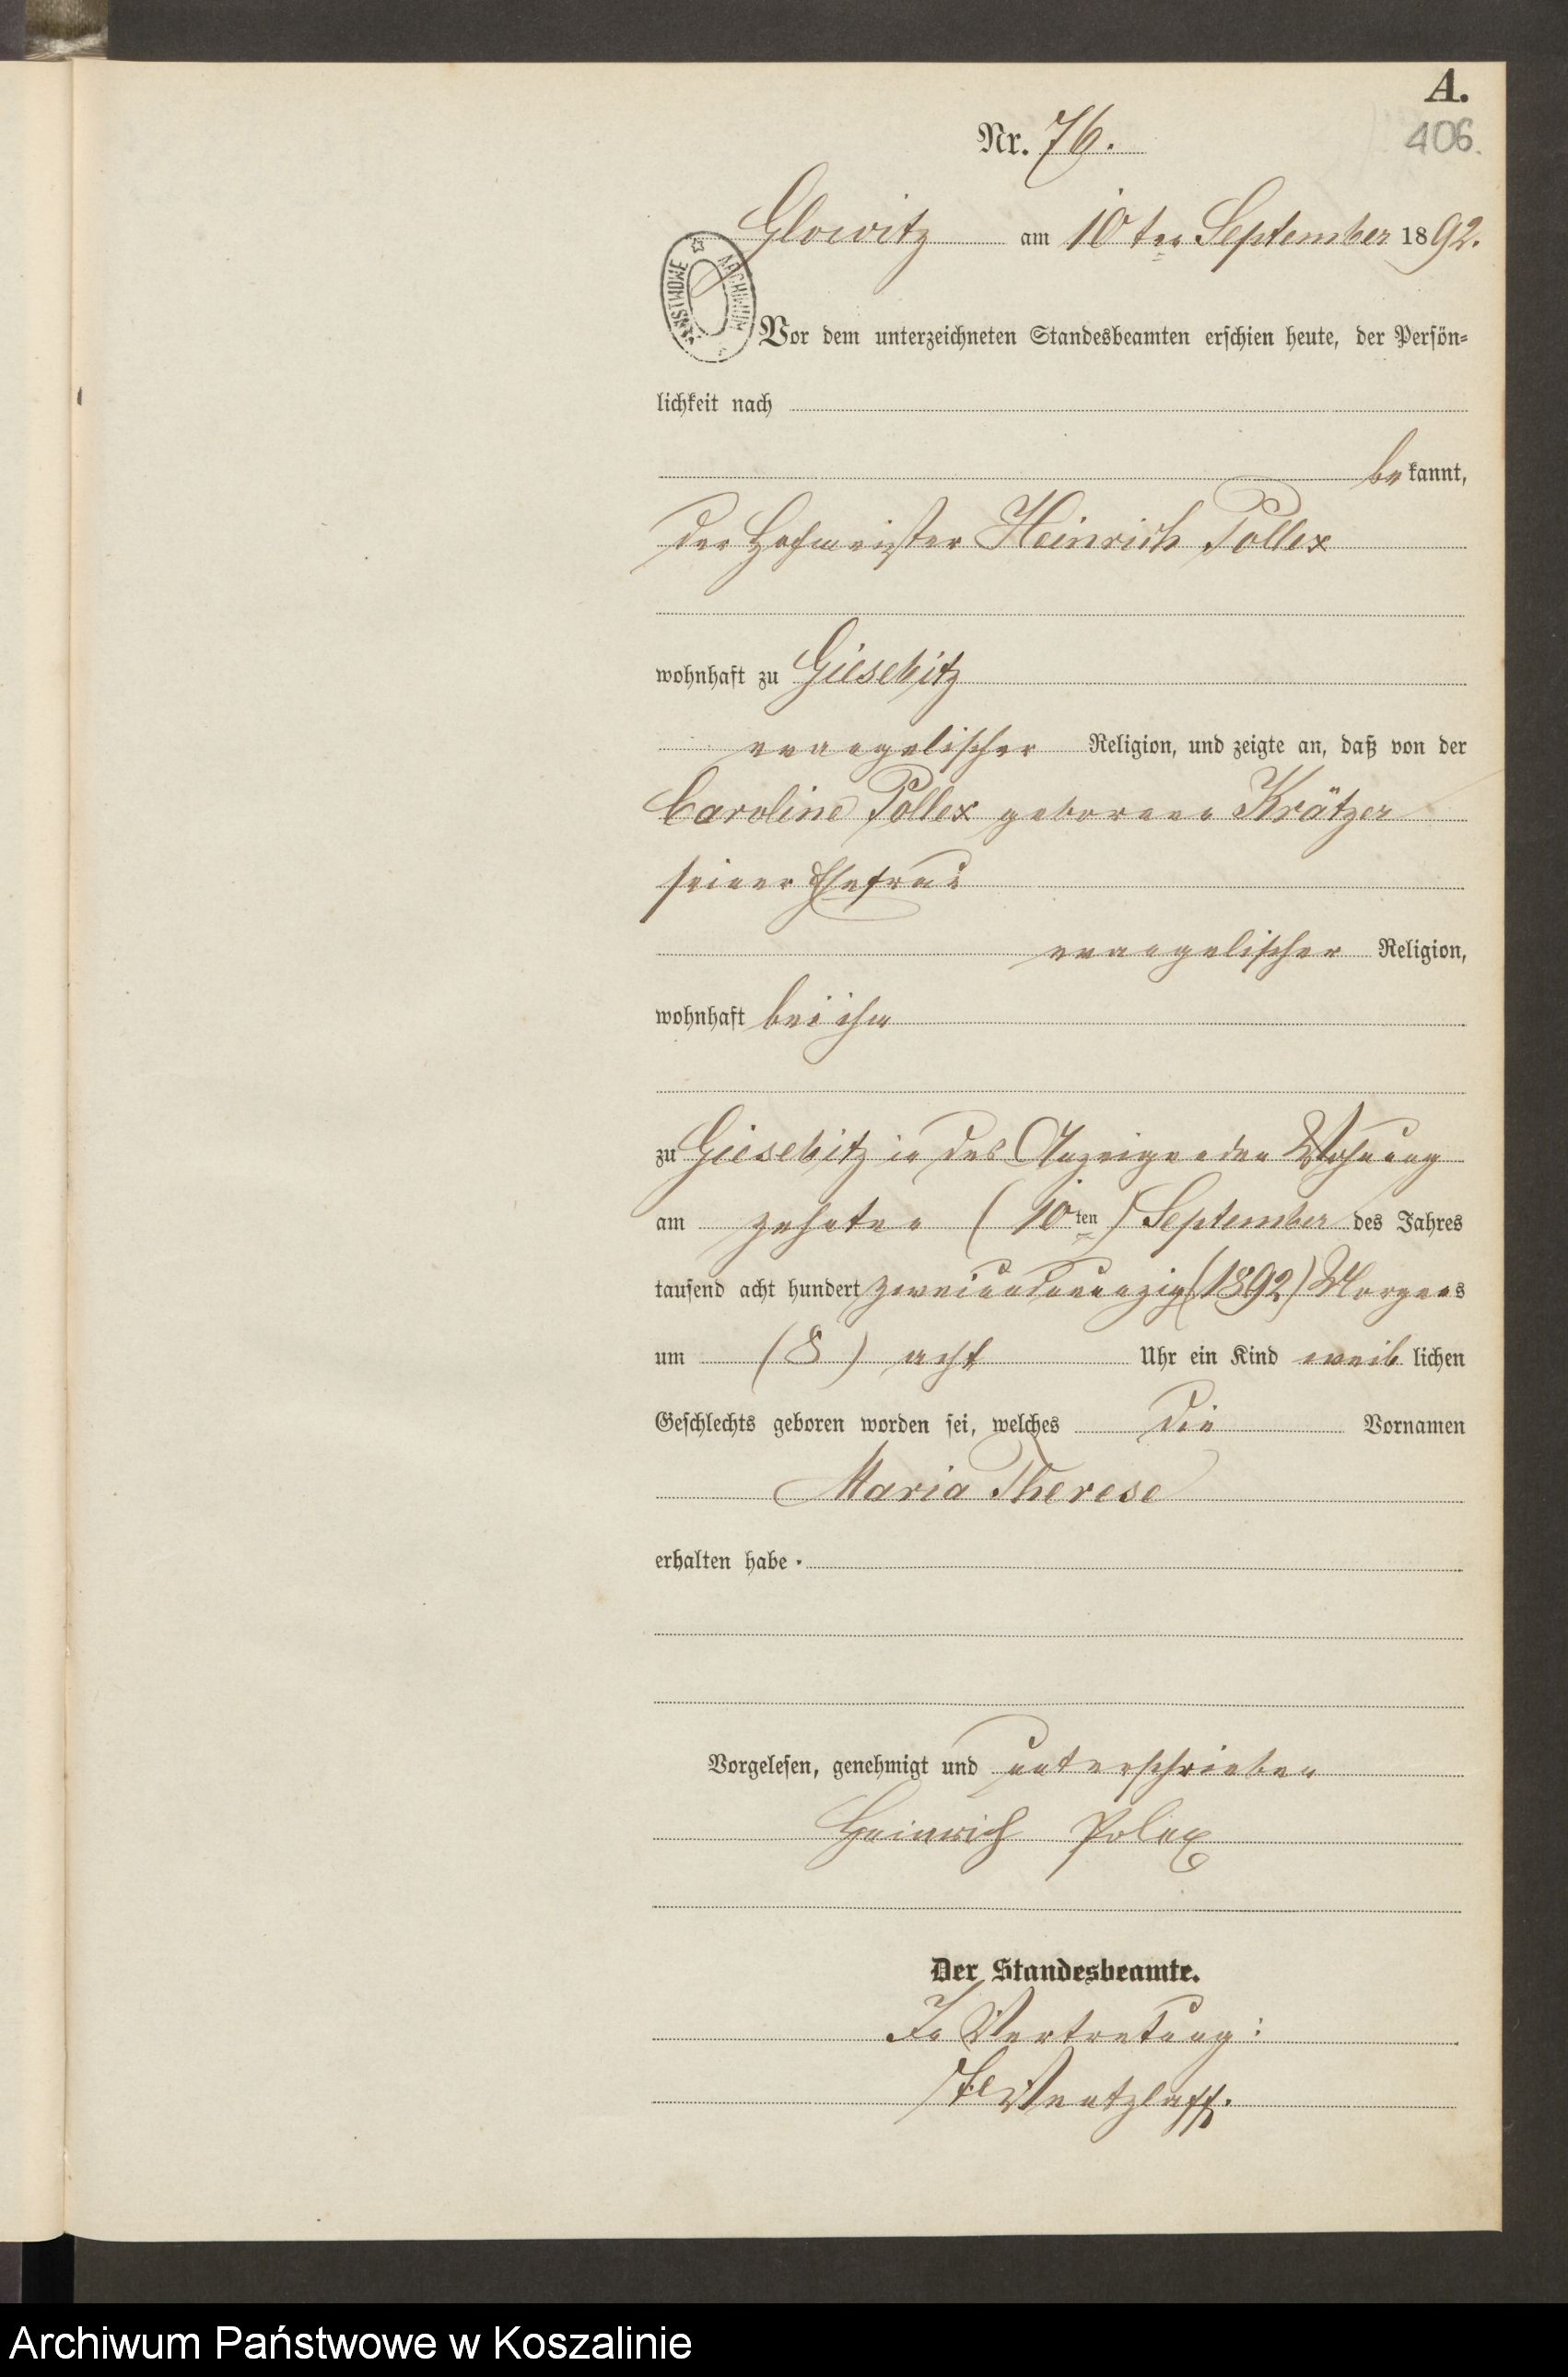 A.
406.
Nr. 76.
Glowitz am 10ten September 1892.
ARCHIWUM PAŃSTWOWE
Vor dem unterzeichneten Standesbeamten erschien heute, der Persön-
lichkeit nach
bekannt,
der Hofmeister Heinrich Pollex
wohnhaft zu Giesebitz
evangelischer Religion, und zeigte an, daß von der
Caroline Pollex geborene Krätzer
seiner Ehefrau
evangelischer Religion,
wohnhaft bei ihm
zu Giesebitz in des Anzeigenden Wohnung
am zehnten (10ten) September des Jahres
tausend acht hundert zweiundneunzig (1892) Morgens
um (8) acht Uhr ein Kind weiblichen
Geschlechts geboren worden sei, welches die Vornamen
Maria Therese
erhalten habe.
Vorgelesen, genehmigt und unterschrieben
Heinrich Polex
Der Standesbeamte.
In Vertretung:
Wentzlaff.
Archiwum Państwowe w Koszalinie